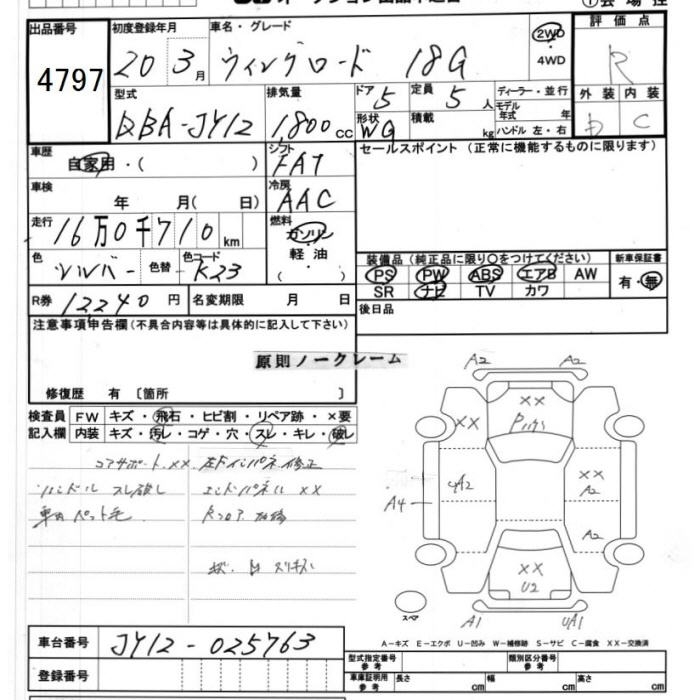 出品番号
4797
初度登録年月
20 3月
車名・グレード
ウィングロード 18G
2WD
4WD
評価点
R
外装 内装
D C
型式
DBA-JY12
排気量
1,800cc
ドア
5
定員
5人
形状
WG
積載
kg
ディーラー・並行
モデル年式 年
ハンドル 左・右
車歴
自家用・( )
シフト
FAT
セールスポイント(正常に機能するものに限ります)
車検
年 月( 日)
冷房
AAC
走行
16万0千710km
燃料
ガソリン
軽油
( )
色
シルバー
色替
色コード
K23
装備品(純正品に限り○をつけてください)
PS PW ABS エアB AW
SR ナビ TV カワ
新車保証書
有・無
R券 12240円
名変期限 月 日
後日品
注意事項申告欄(不具合内容等は具体的に記入して下さい)
原則ノークレーム
修復歴 有〔箇所 〕
検査員記入欄
FW キズ・飛石・ヒビ割・リペア跡・×要
内装 キズ・汚レ・コゲ・穴・スレ・キレ・破レ
コアサポート XX
左Fインパネ修正
ハンドル スレ破レ
エンドパネル XX
車内 ペット毛
A2 A2
XX
XX
A2
XX
A2
A4
A2
XX
U2
A1 UA1
スペア
A-キズ E-エクボ U-凹み W-補修跡 S-サビ C-腐食 XX-交換済
車台番号 JY12-025763
登録番号
型式指定番号参考
類別区分番号参考
車庫証明用参考
長さ cm
幅 cm
高さ cm